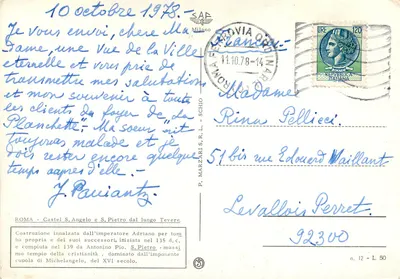 10 octobre 1978.-
Je vous envoi, chere Ma
dame, une vue de la Ville
eternelle et vous prie de
transmettre mes salutations
et mon souvenir à toute
les clients du foyer de "La
Planchette". Ma soeur est
toujours malade et je
vois rester encore quelque
temps aupres d'elle.-
J. Paviantz.-
ROMA - Castel S. Angelo e S. Pietro dal lungo Tevere
Costruzione innalzata dall'imperatore Adriano per tom-
ba propria e dei suoi successori, iniziata nel 135 d.c.
e compiuta nel 139 da Antonino Pio. S. Pietro - massi
mo tempio della cristianità, dominato dall'imponente
cupola di Michelangelo, del XVI secolo.
SAF
Milano
P. MARZARI S.R.L. - SCHIO
ROMA FERROVIA ORDINARIE
11.10.78-14
Francia
Madame
Rina Pellicci
51 bis rue Edouard Vaillant
Levallois Perret.
92300
n. 12 - L. 50